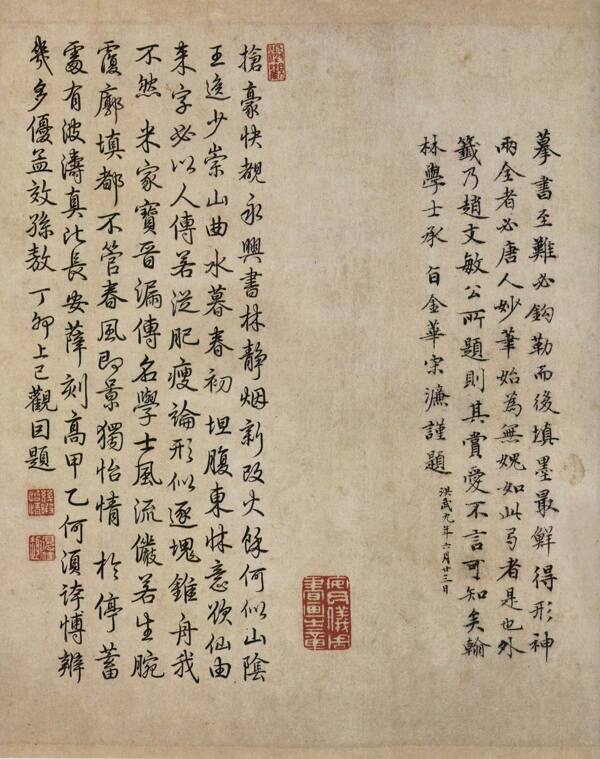 摹書至難必鈎勒而後填墨最鮮得形神
兩全者必唐人妙筆始為無媿如此弓者是也外
籤乃趙文敏公所題則其賞愛不言可知矣翰
林學士承旨金華宋濂謹題 洪武九年六月廿三日
安氏儀周書畫之章
搶豪快覩永興書林靜烟新改火餘何似山陰
王逸少崇山曲水暮春初坦腹東牀意欲仙由
来字必以人傳若從肥瘦論形似逐塊錐舟我
不然米家寶晉漏傳名學士風流儼若生腕
覆廓填都不管春風即景獨怡情於停蓄
處有波濤真比長安薛刻高甲乙何須誇博辨
幾多優孟效孫敖丁卯上巳觀因題